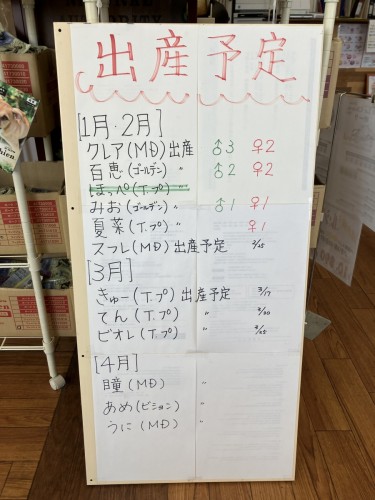 出産予定
[1月・2月]
クレア(MD)出産 ♂3 ♀2
百恵(ゴールデン) 〃 ♂2 ♀2
ほっぺ(T.プ) 〃
みお(ゴールデン) 〃 ♂1 ♀1
夏菜(T.プ) 〃 ♀1
スフレ(MD)出産予定 2/25
[3月]
きゅー(T.プ)出産予定 3/17
てん(T.プ) 〃 3/20
ビオレ(T.プ) 〃 3/25
[4月]
瞳(MD) 〃
あめ(ビション) 〃
うに(MD) 〃